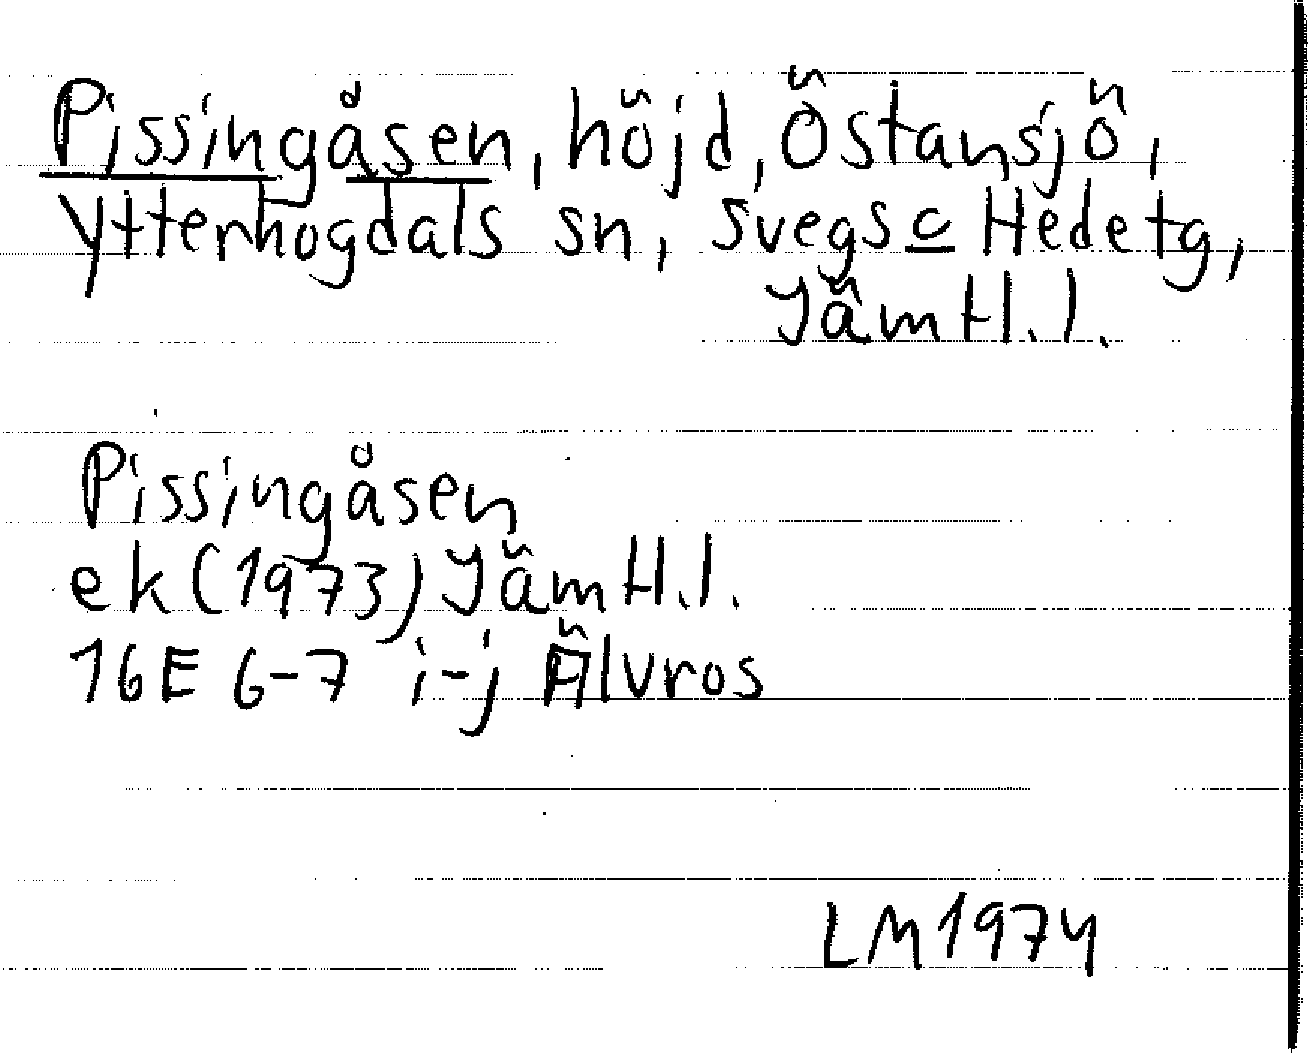 Pissingåsen, höjd, Östansjö,
Ytterhogdals sn, Svegs o Hede tg,
Jämtl. l.
Pissingåsen
ek (1973) Jämtl. l.
16E 6-7 i-j Älvros
LM 1974